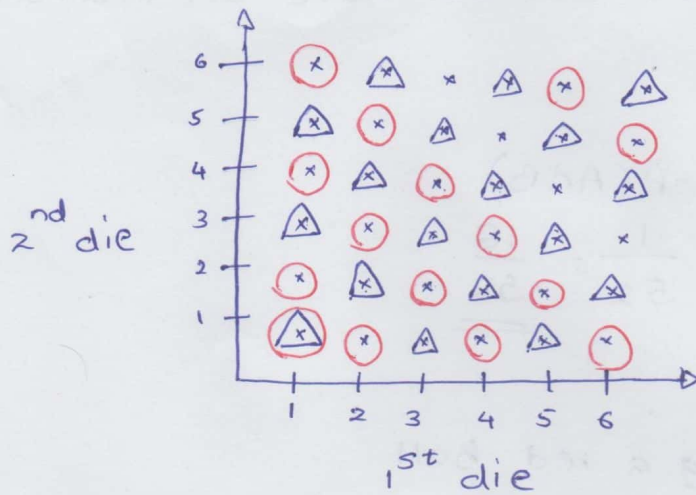 6
5
4
3
2
1
2nd die
1 2 3 4 5 6
1st die